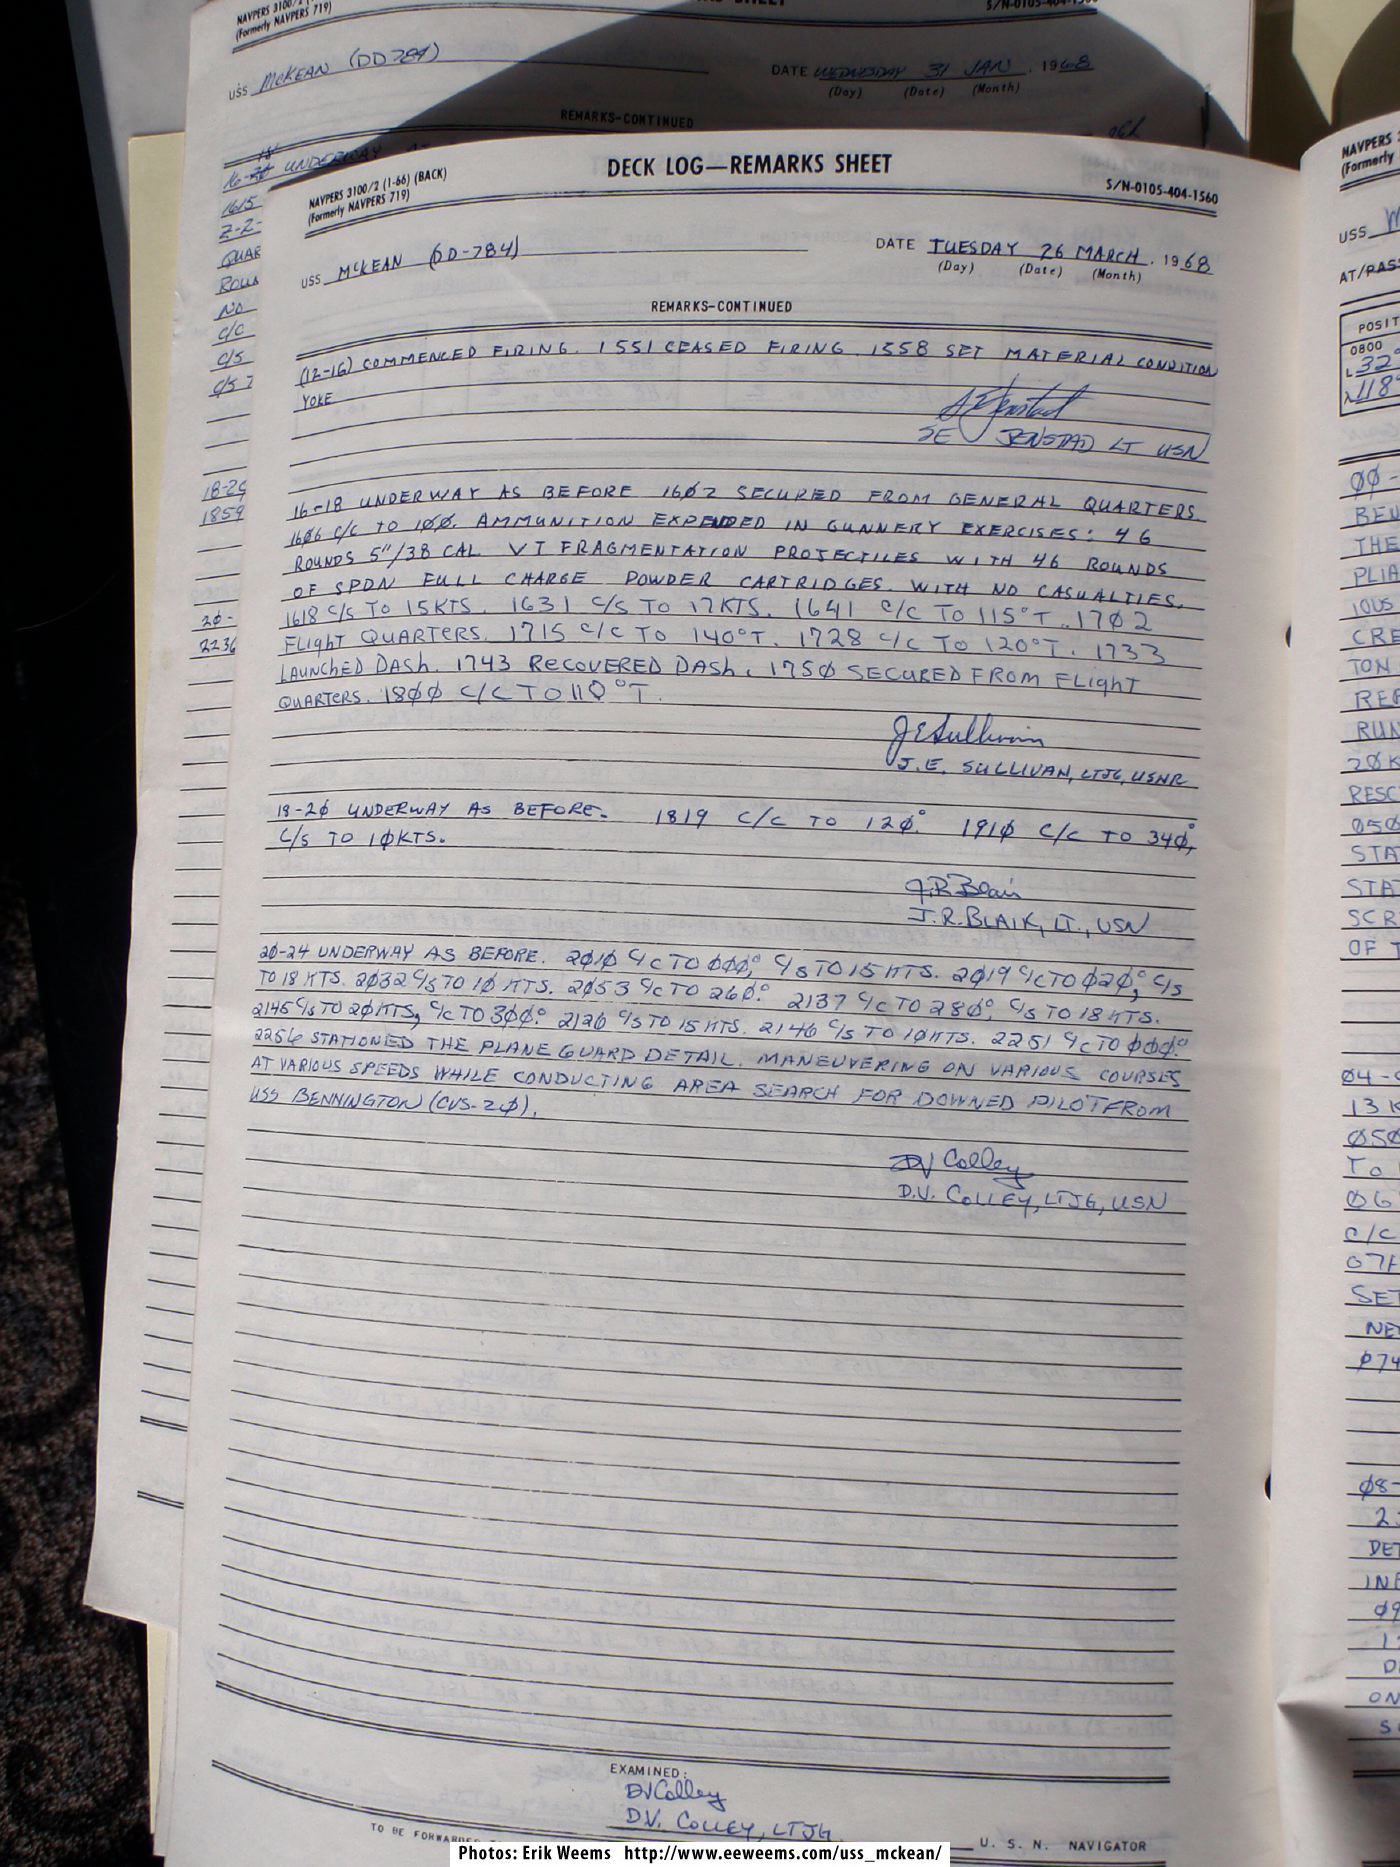 NAVPERS 3100/2
(Formerly NAVPERS 719)
S/N-0105-404-1560
USS McKEAN (DD784)
DATE WEDNESDAY 31 JAN, 1968
(Day) (Date) (Month)
REMARKS-CONTINUED
UNDERWAY
1615
Z-2-
QUAR
ROUN
NO
C/C
C/S
C/S
18-20
1859
20-
2236
DECK LOG—REMARKS SHEET
NAVPERS 3100/2 (1-66) (BACK)
(Formerly NAVPERS 719)
S/N-0105-404-1560
USS McKEAN (DD-784)
DATE TUESDAY 26 MARCH, 1968
(Day) (Date) (Month)
REMARKS-CONTINUED
(12-16) COMMENCED FIRING. 1551 CEASED FIRING. 1558 SET MATERIAL CONDITION
YOKE
SE JENSTAD LT USN
16-18 UNDERWAY AS BEFORE 1602 SECURED FROM GENERAL QUARTERS.
1606 C/C TO 100. AMMUNITION EXPENDED IN GUNNERY EXERCISES: 46
ROUNDS 5"/38 CAL VT FRAGMENTATION PROJECTILES WITH 46 ROUNDS
OF SPDN FULL CHARGE POWDER CARTRIDGES. WITH NO CASUALTIES.
1618 C/S TO 15KTS. 1631 C/S TO 17KTS. 1641 C/C TO 115°T. 1702
FLIGHT QUARTERS. 1715 C/C TO 140°T. 1728 C/C TO 120°T. 1733
LAUNCHED DASH. 1743 RECOVERED DASH. 1750 SECURED FROM FLIGHT
QUARTERS. 1800 C/C TO 110°T.
JE Sullivan
J.E. SULLIVAN, LTJG, USNR
18-20 UNDERWAY AS BEFORE. 1819 C/C TO 120°. 1910 C/C TO 340°,
C/S TO 10KTS.
J.R. Blair
J.R. BLAIR, LT., USN
20-24 UNDERWAY AS BEFORE. 2010 C/C TO 000°, C/S TO 15 KTS. 2019 C/C TO 020°, C/S
TO 18 KTS. 2032 C/S TO 10 KTS. 2053 C/C TO 260°. 2137 C/C TO 280°, C/S TO 18 KTS.
2145 C/S TO 20KTS, C/C TO 300°. 2126 C/S TO 15 KTS. 2146 C/S TO 10KTS. 2251 C/C TO 000°.
2256 STATIONED THE PLANE GUARD DETAIL. MANEUVERING ON VARIOUS COURSES
AT VARIOUS SPEEDS WHILE CONDUCTING AREA SEARCH FOR DOWNED PILOT FROM
USS BENNINGTON (CVS-20).
DV Colley
D.V. COLLEY, LTJG, USN
EXAMINED:
DV Colley
D.V. COLLEY, LTJG.
TO BE FORWARDED
U. S. N. NAVIGATOR
NAVPERS
(Formerly
USS
AT/PAS
POSIT
0800
L 32°
λ 118°
00-
BEN
THE
PLIA
IOUS
CRE
TON
REF
RUN
20K
RESC
050
STAT
STAT
SCR
OF T
04-
13 K
050
TO
06
C/C
07
SET
NE
074
08-
2
DET
INF
09
1
D
ON
S
Photos: Erik Weems http://www.eeweems.com/uss_mckean/